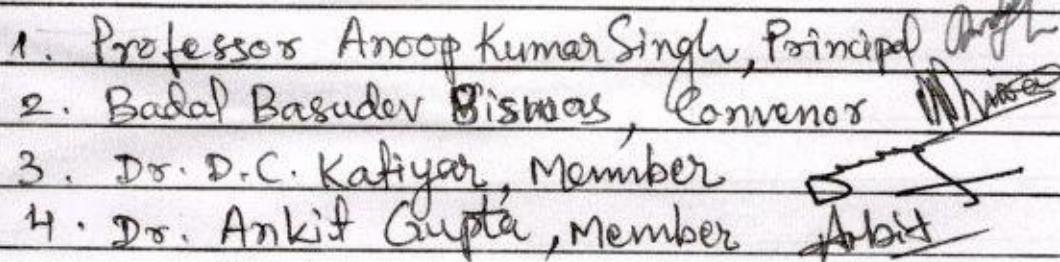 1. Professor Anoop Kumar Singh, Principal
2. Badal Basudev Biswas, Convenor
3. Dr. D.C. Katiyar, Member
4. Dr. Ankit Gupta, Member